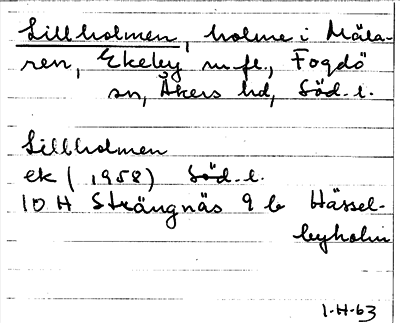 Lillholmen, holme i Mäla-
ren, Ekeby m.fl., Fogdö
sn, Åkers hd, Söd. l.
Lillholmen
ek (1958) Söd. l.
10 H Strängnäs 9 b Hässel-
byholm
1-H-63